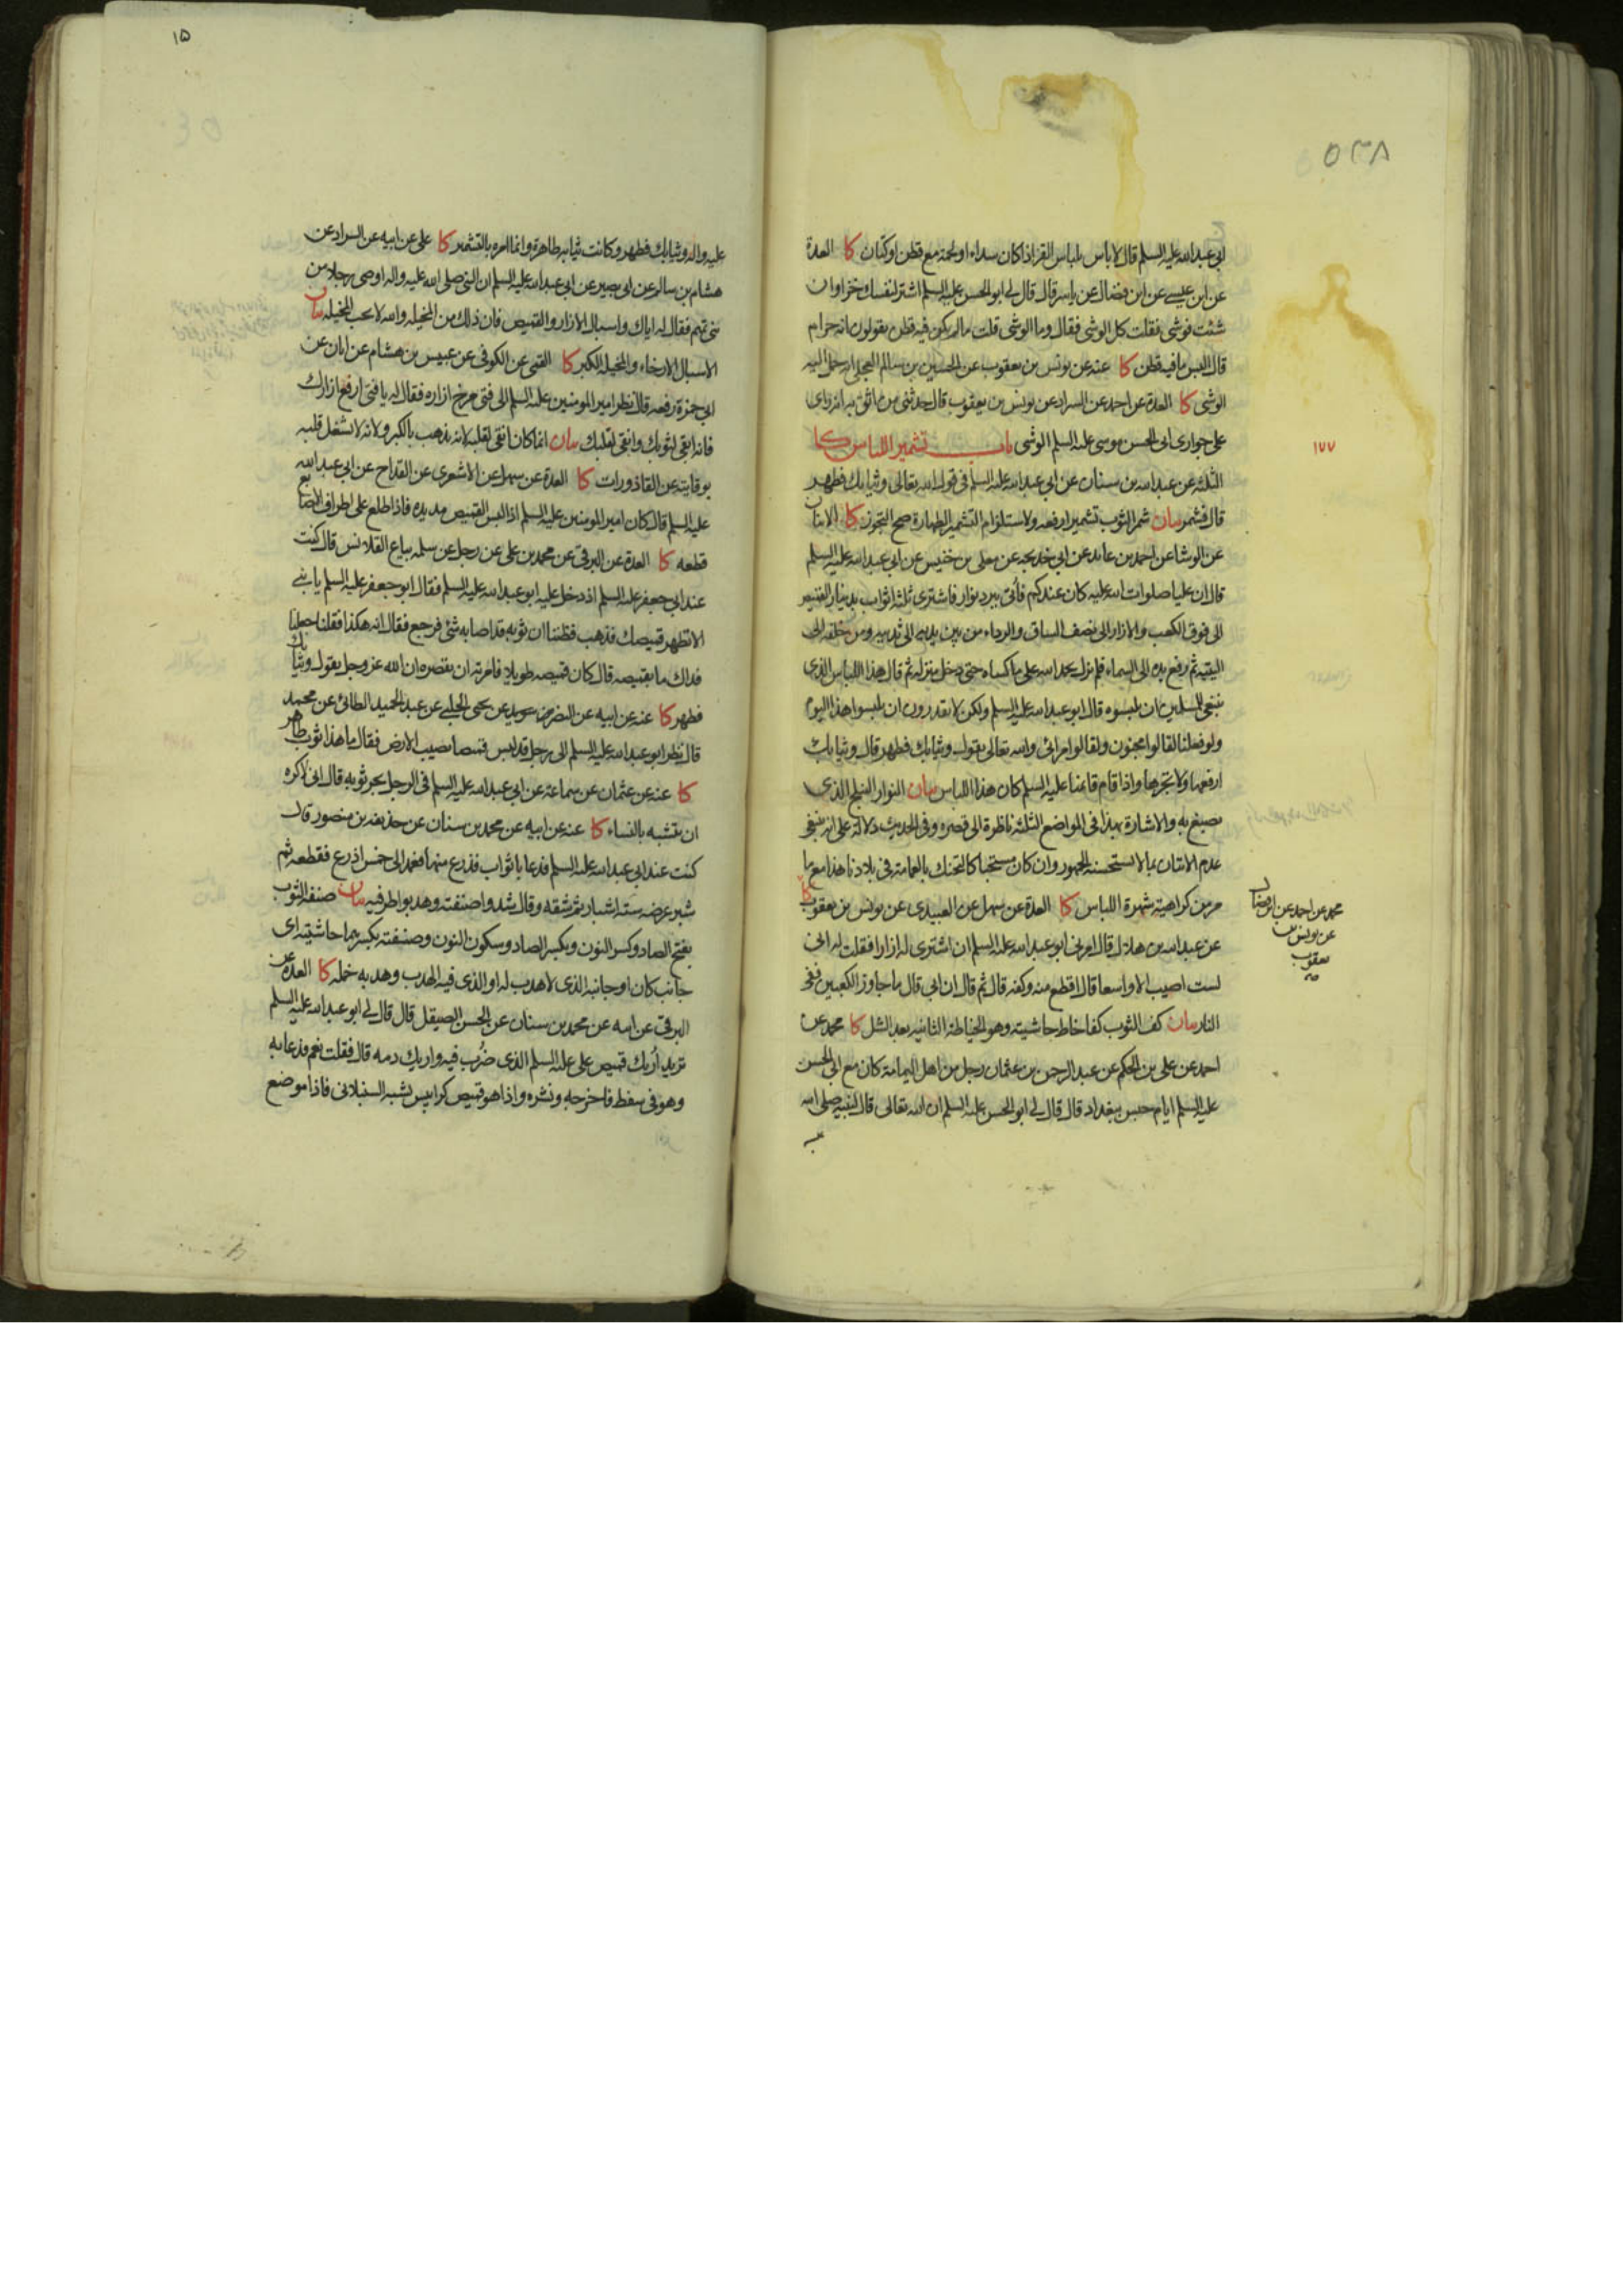 ٥٣٨
ابي عبد الله عليه السلم قال لا باس بلباس القز اذا كان سداه او لحمته مع قطن او كتان كا العدة
عن ابن عيسى عن ابن فضال عن ياسر قال قال لي ابو الحسن عليه السلم اشتر لنفسك خزا وان
شئت فوشى فقلت كل الوشى فقال وما الوشى قلت ما لم يكن فيه قطن يقولون انه حرام
قال البس ما فيه قطن كا عنه عن يونس بن يعقوب عن الحسين بن سالم العجلي انه حمل اليه
الوشى كا العدة عن احمد عن السراد عن يونس بن يعقوب قال حدثني من اثق به انه راى
على جوارى ابى الحسن موسى عليه السلم الوشى باب تشمير اللباس كا
١٧٧
الثلثة عن عبد الله بن سنان عن ابي عبد الله عليه السلم في قول الله تعالى وثيابك فطهر
قال فشمر بيان شمر الثوب تشميرا رفعه ولاستلزام التشمير الطهارة صح التجوز كا الاثنان
عن الوشا عن احمد بن عائذ عن ابي خديجه عن معلى بن خنيس عن ابي عبد الله عليه السلم
قال ان عليا صلوات الله عليه كان عندكم فاتى ببرد نوار فاشترى ثلثة اثواب بدينار القميص
الى فوق الكعب والازار الى نصف الساق والرداء من بين يديه الى ثدييه ومن خلفه الى
اليتيه ثم رفع يده الى السماء فلم يزل يحمد الله على ما كساه حتى دخل منزله ثم قال هذا اللباس الذى
ينبغي للمسلمين ان يلبسوه قال ابو عبد الله عليه السلم ولكن لا يقدرون ان يلبسوا هذا اليوم
ولو فعلنا لقالوا مجنون ولقالوا مرائي والله تعالى يقول وثيابك فطهر قال وثيابك
ارفعها ولا تجرها واذا قام قائمنا عليه السلم كان هذا اللباس بيان النوار النيلج الذى
يصبغ به والاشارة بهذا في المواضع الثلثة ناظرة الى قصره وفي الحديث دلالة على انه ينبغي
عدم الاتيان بما لا يستحسنه الجمهور وان كان مستحبا كالتحنك بالعمامة في بلادنا هذا مع ما
مر من كراهية شهرة اللباس كا العدة عن سهل عن العبيدى عن يونس بن يعقوب كا
محمد عن احمد عن ابن فضال
عن يونس بن
يعقوب
صح
عن عبد الله بن هلال قال امرني ابو عبد الله عليه السلم ان اشترى له ازارا فقلت له اني
لست اصيب الا واسعا قال اقطع منه وكفه قال ثم قال ان ابي قال ما جاوز الكعبين ففي
النار بيان كف الثوب كفا خاط حاشيته وهو الخياطة الثانيه بعد الشل كا محمد عن
احمد عن على بن الحكم عن عبد الرحمن بن عثمان رجل من اهل اليمامة كان مع ابي الحسن
عليه السلم ايام حبس ببغداد قال قال لي ابو الحسن عليه السلم ان الله تعالى قال لنبيه صلى الله
١٥
عليه واله وثيابك فطهر وكانت ثيابه طاهرة وانما امره بالتشمير كا على عن ابيه عن السراد عن
هشام بن سالم عن ابي بصير عن ابي عبد الله عليه السلم ان النبي صلى الله عليه واله اوصى رجلا من
بني تميم فقال له اياك واسبال الازار والقميص فان ذلك من المخيله والله لا يحب المخيله بيان
الاسبال الارخاء والمخيله الكبر كا القمي عن الكوفي عن عبيس بن هشام عن ابان عن
ابي حمزة رفعه قال نظر امير المومنين عليه السلم الى فتى مرخ ازاره فقال له يا فتى ارفع ازارك
فانه ابقى لثوبك وانقى لقلبك بيان انما كان انقى لقلبه لانه يذهب بالكبر ولانه لا يشغل قلبه
بوقايته عن القاذورات كا العدة عن سهل عن الاشعرى عن القداح عن ابي عبد الله
عليه السلم قال كان امير المومنين عليه السلم اذا لبس القميص مد يده فاذا طلع على اطراف الاصابع
قطعه كا العدة عن البرقي عن محمد بن على عن رجل عن سلمه بياع القلانس قال كنت
عند ابي جعفر عليه السلم اذ دخل عليه ابو عبد الله عليه السلم فقال ابو جعفر عليه السلم يا بني
الا تطهر قميصك فذهب فظننا ان ثوبه قد اصابه شئ فرجع فقال انه هكذا فقلنا جعلنا
فداك ما بقميصه قال كان قميصه طويلا فامرته ان يقصره ان الله عز وجل يقول وثيابك
فطهر كا عنه عن ابيه عن النضر بن سويد عن يحيى الحلبي عن عبد الحميد الطائي عن محمد
قال نظر ابو عبد الله عليه السلم الى رجل قد لبس قميصا يصيب الارض فقال ما هذا ثوب طاهر
كا عنه عن عثمان عن سماعة عن ابي عبد الله عليه السلم في الرجل يجر ثوبه قال اني لاكره
ان يتشبه بالنساء كا عنه عن ابيه عن محمد بن سنان عن حذيفه بن منصور قال
كنت عند ابي عبد الله عليه السلم فدعا باثواب فذرع منها فعمد الى خمس اذرع فقطعه ثم
شبر عرضه ستة اشبار ثم شقه وقال شدوا صنفته وهدبوا طرفيه بيان صنفة الثوب
بفتح الصاد وكسر النون وبكسر الصاد وسكون النون وصنفته بكسرهما حاشيته اى
جانب كان او جانبه الذى لا هدب له او الذى فيه الهدب وهدبه خمله كا العدة عن
البرقي عن ابيه عن محمد بن سنان عن الحسن الصيقل قال قال لي ابو عبد الله عليه السلم
تريد اريك قميص على عليه السلم الذى ضرب فيه واريك دمه قال فقلت نعم فدعا به
وهو في سفط فاخرجه ونشره واذا هو قميص كرابيس يشبه السنبلاني فاذا موضع